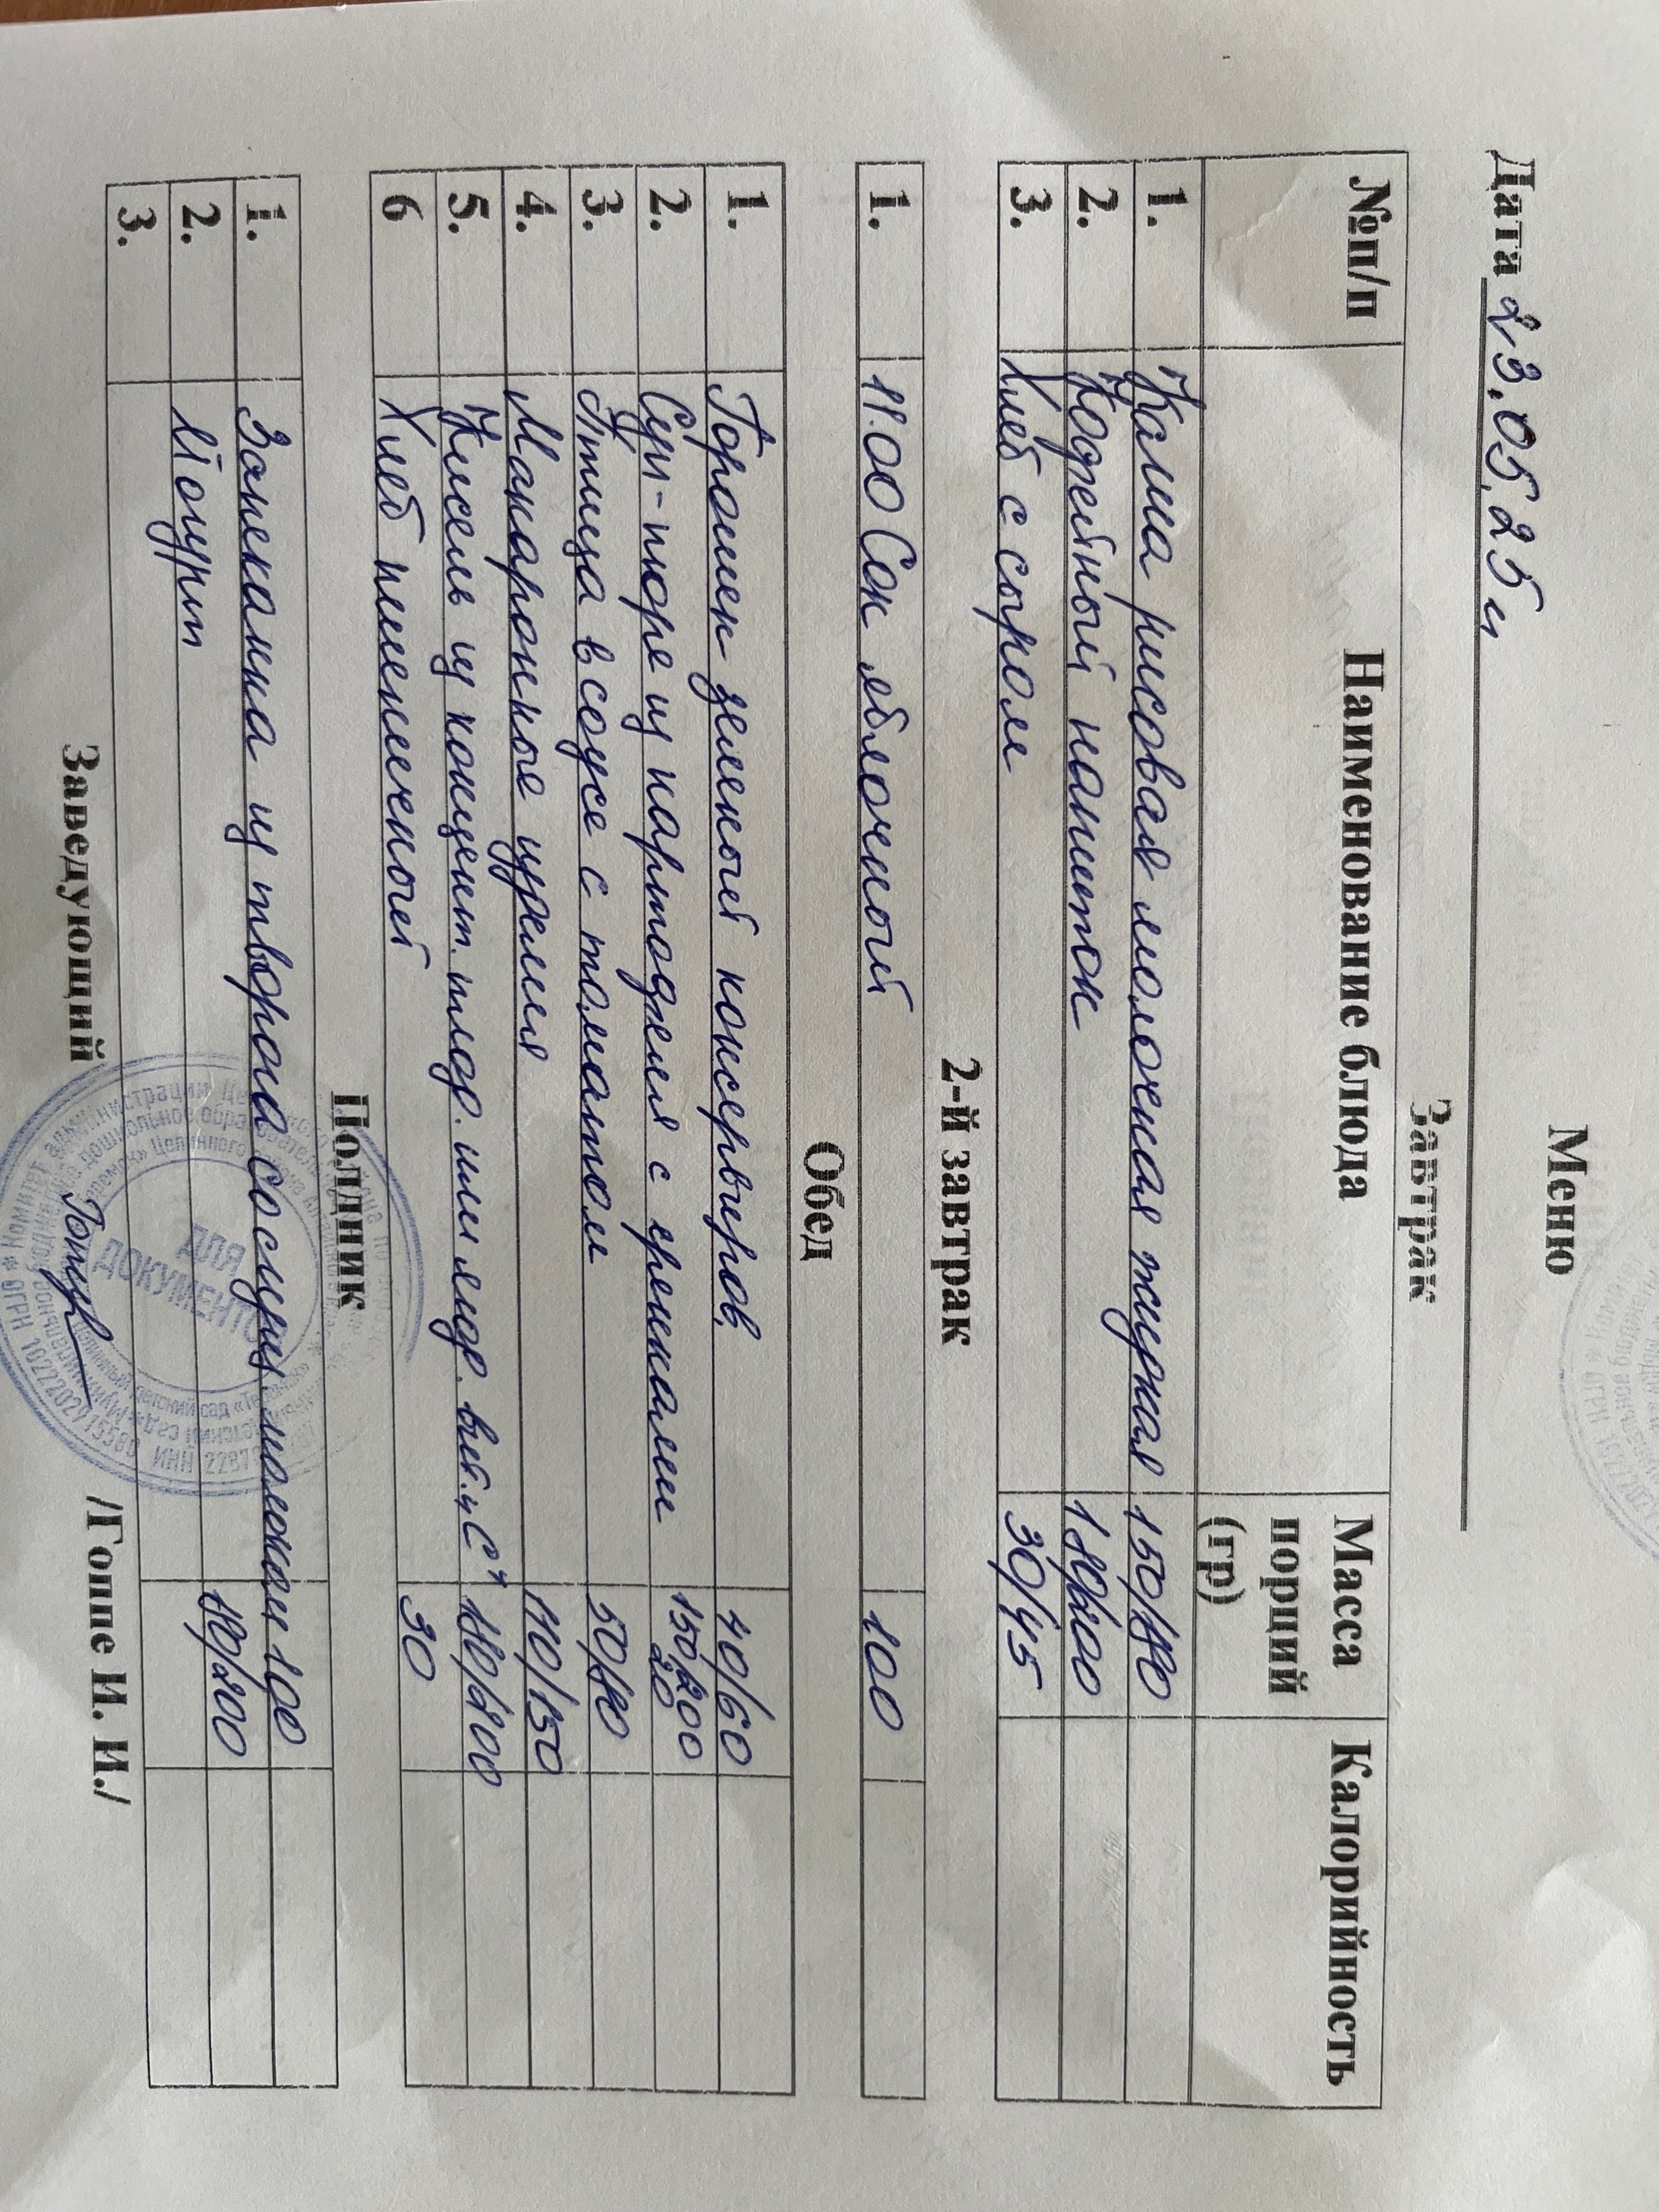 Меню
Дата 23.05.25 г
Завтрак
№п/п Наименование блюда Масса порций (гр) Калорийность
1. Каша рисовая молочная жидкая 150/180
2. Кофейный напиток 180/200
3. Хлеб с сыром 30/45
2-й завтрак
1. 11.00 Сок яблочный 100
Обед
1. Горошек зеленый консервиров. 40/60
2. Суп-пюре из картофеля с гренками 150/200 20
3. Птица в соусе с томатом 50/80
4. Макаронные изделия 110/150
5. Кисель из концент. плод. или ягод. вит. "С" 180/200
6 Хлеб пшеничный 30
Полдник
1. Запеканка из творога со сгущ. молоком 100
2. Йогурт 180/200
3.
Заведующий /Гоппе И. И./
ДЛЯ
ДОКУМЕНТОВ